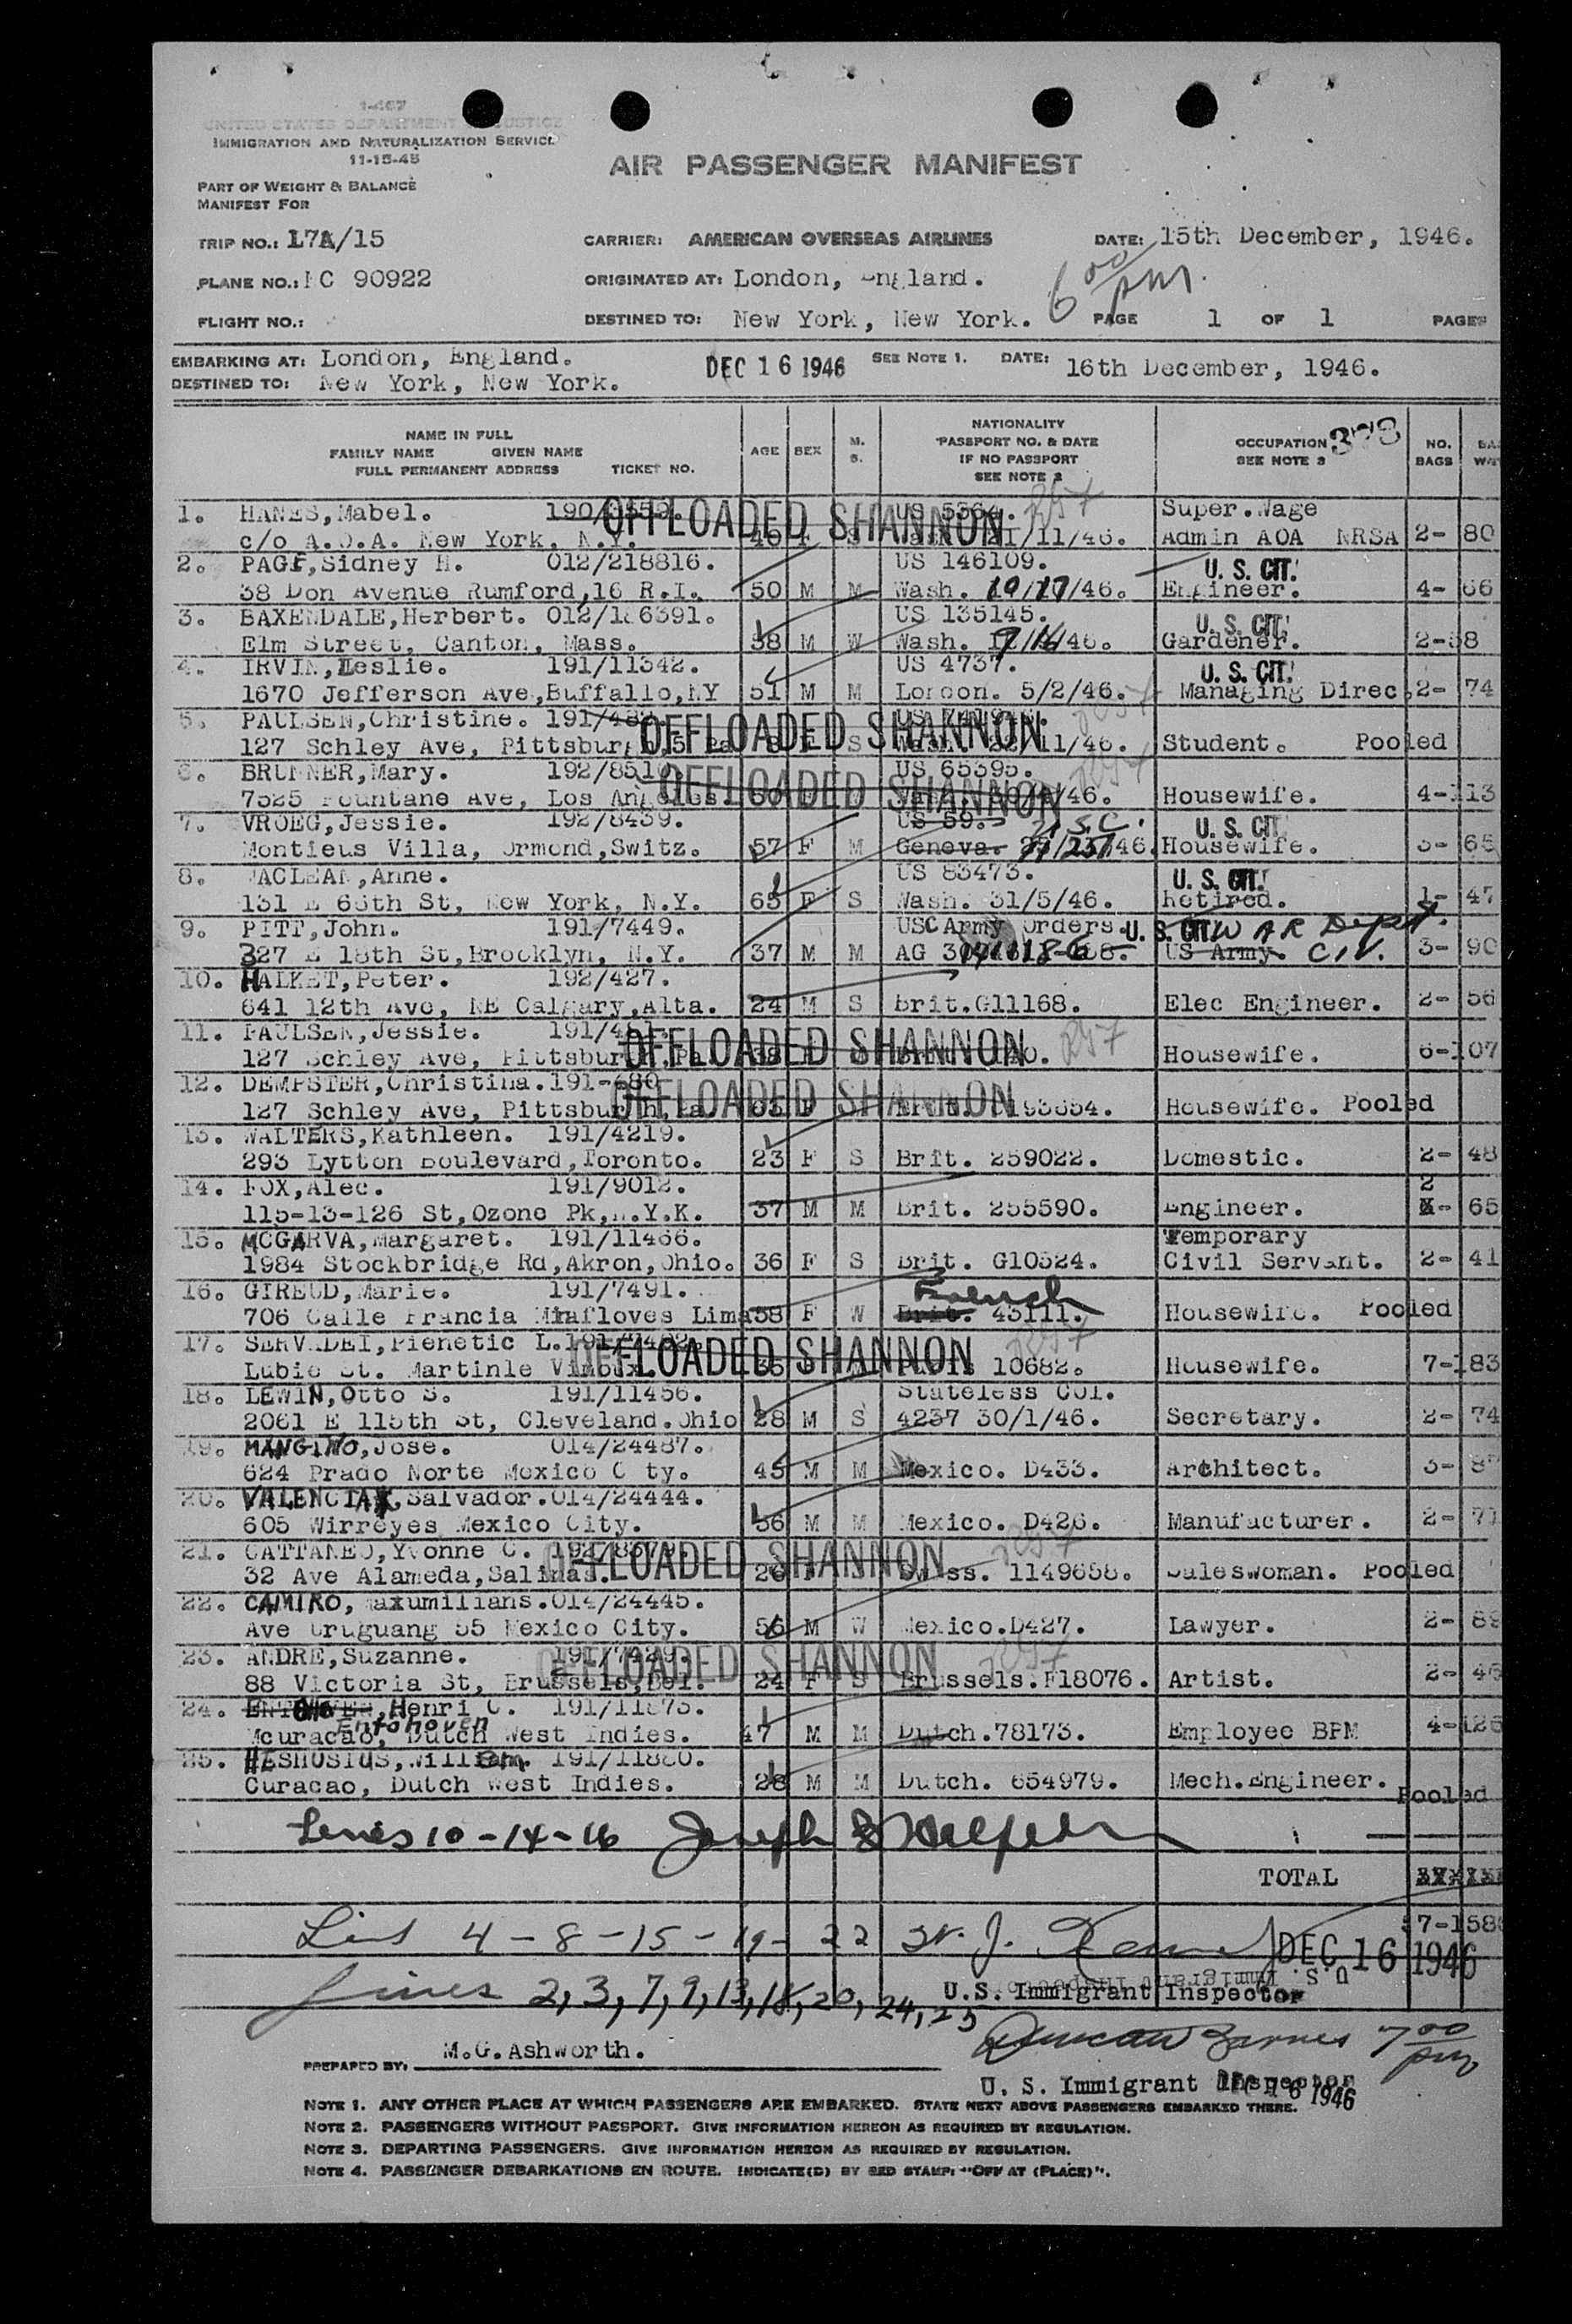 1-467
UNITED STATES DEPARTMENT JUSTICE
IMMIGRATION AND NATURALIZATION SERVICE
11-15-45
AIR PASSENGER MANIFEST
PART OF WEIGHT & BALANCE
MANIFEST FOR
TRIP NO.: L7A/15 CARRIER: AMERICAN OVERSEAS AIRLINES DATE: 15th December, 1946.
PLANE NO.: NC 90922 ORIGINATED AT: London, England. 6 00 pm.
FLIGHT NO.: DESTINED TO: New York, New York. PAGE 1 OF 1 PAGES
EMBARKING AT: London, England. DEC 16 1946 SEE NOTE 1. DATE: 16th December, 1946.
DESTINED TO: New York, New York.
NAME IN FULL
FAMILY NAME GIVEN NAME
FULL PERMANENT ADDRESS TICKET NO.
AGE SEX M. S.
NATIONALITY
PASSPORT NO. & DATE
IF NO PASSPORT
SEE NOTE 2
OCCUPATION
SEE NOTE 3
NO. BAGS
1. HANES, Mabel. OFFLOADED SHANNON 257 Super. Wage
c/o A.O.A. New York, N.Y. 21/11/46. Admin AOA NRSA 2- 80
2. PAGE, Sidney H. 012/218816. US 146109. U. S. CIT.
38 Don Avenue Rumford, 16 R.I. 50 M M Wash. /46. Engineer. 4- 66
3. BAXENDALE, Herbert. 012/186391. US 135145. U. S. CIT.
Elm Street, Canton, Mass. 38 M W Wash. /46. Gardener. 2-58
4. IRVIN, Leslie. 191/11342. US 4737. U. S. CIT.
1670 Jefferson Ave, Buffallo, NY 51 M M London. 5/2/46. Managing Direc. 2- 74
5. PAULSEN, Christine. OFFLOADED SHANNON 257
127 Schley Ave, Pittsburg 8 F S /11/46. Student. Pooled
6. BRUNNER, Mary. OFFLOADED SHANNON US 65395. 257
7525 Fountane Ave, Los Angeles. /46. Housewife. 4-113
7. VROEG, Jessie. 192/8439. US 59. U.S.C. U. S. CIT.
Montieus Villa, Ormond, Switz. 57 F M Geneva. /46. Housewife. 3- 65
8. MACLEAN, Anne. US 83473. U. S. CIT.
131 E 66th St, New York, N.Y. 65 F S Wash. 31/5/46. Retired. 1- 47
9. PITT, John. 191/7449. USC Army Orders. U. S. CIT. WAR Dept.
327 E 18th St, Brooklyn, N.Y. 37 M M AG US Army. CIV. 3- 90
10. HALKET, Peter. 192/427.
641 12th Ave, NE Calgary, Alta. 24 M S Brit. G11168. Elec Engineer. 2- 56
11. PAULSEN, Jessie. OFFLOADED SHANNON 257
127 Schley Ave, Pittsburgh, Pa. 38 Housewife. 6-107
12. DEMPSTER, Christina. 191-480 OFFLOADED SHANNON
127 Schley Ave, Pittsburgh, Housewife. Pooled
13. WALTERS, Kathleen. 191/4219.
293 Lytton Boulevard, Toronto. 23 F S Brit. 259022. Domestic. 2- 48
14. FOX, Alec. 191/9012. 2
115-13-126 St, Ozone Pk, N.Y.K. 37 M M Brit. 255590. Engineer. 65
15. MCGARVA, Margaret. 191/11466. Temporary
1984 Stockbridge Rd, Akron, Ohio. 36 F S Brit. G10524. Civil Servant. 2- 41
16. GIREUD, Marie. 191/7491. French
706 Calle Francia Mirafloves Lima 38 F W Brit. 43111. Housewife. Pooled
17. SERVADEI, Pienetic L. OFFLOADED SHANNON 257
Lubie St. Martinle 10682. Housewife. 7-183
18. LEWIN, Otto S. 191/11456. Stateless
2061 E 115th St, Cleveland. Ohio 28 M S 4237 30/1/46. Secretary. 2- 74
19. MANGINO, Jose. 014/24487.
624 Prado Norte Mexico C ty. 45 M M Mexico. D433. Architect. 3-
20. VALENCIA, Salvador. 014/24444.
605 Wirreyes Mexico City. 36 M M Mexico. D426. Manufacturer. 2- 71
21. CATTANEO, Yvonne C. OFFLOADED SHANNON 257
32 Ave Alameda, Salinas. 26 Swiss. 1149658. Saleswoman. Pooled
22. CAMIRO, Maxumilians. 014/24445.
Ave Uruguang 55 Mexico City. 56 M W Mexico. D427. Lawyer. 2-
23. ANDRE, Suzanne. 191/7429. OFFLOADED SHANNON 257
88 Victoria St, Brussels, Bel. 24 F S Brussels. F18076. Artist. 2- 46
24. Henri C. 191/11875.
Entohoven
Mcuracao, Dutch West Indies. 47 M M Dutch. 78173. Employee BPM 4-126
25. HESHUSIUS, William. 191/11880.
Curacao, Dutch West Indies. 28 M M Dutch. 654979. Mech. Engineer. Pooled
Lines 10-14-16 Joseph
TOTAL
Lines 4-8-15-19-22 DEC 16 1946
U.S. Immigrant Inspector
Lines 2, 3, 7, 9, 13, 18, 20, 24, 25
Duncan Barnes 7 00 pm
PREPARED BY: M.G. Ashworth.
U. S. Immigrant Inspector DEC 16 1946
NOTE 1. ANY OTHER PLACE AT WHICH PASSENGERS ARE EMBARKED. STATE NEXT ABOVE PASSENGERS EMBARKED THERE.
NOTE 2. PASSENGERS WITHOUT PASSPORT. GIVE INFORMATION HEREON AS REQUIRED BY REGULATION.
NOTE 3. DEPARTING PASSENGERS. GIVE INFORMATION HEREON AS REQUIRED BY REGULATION.
NOTE 4. PASSENGER DEBARKATIONS EN ROUTE. INDICATE(D) BY RED STAMP: "OFF AT (PLACE)".